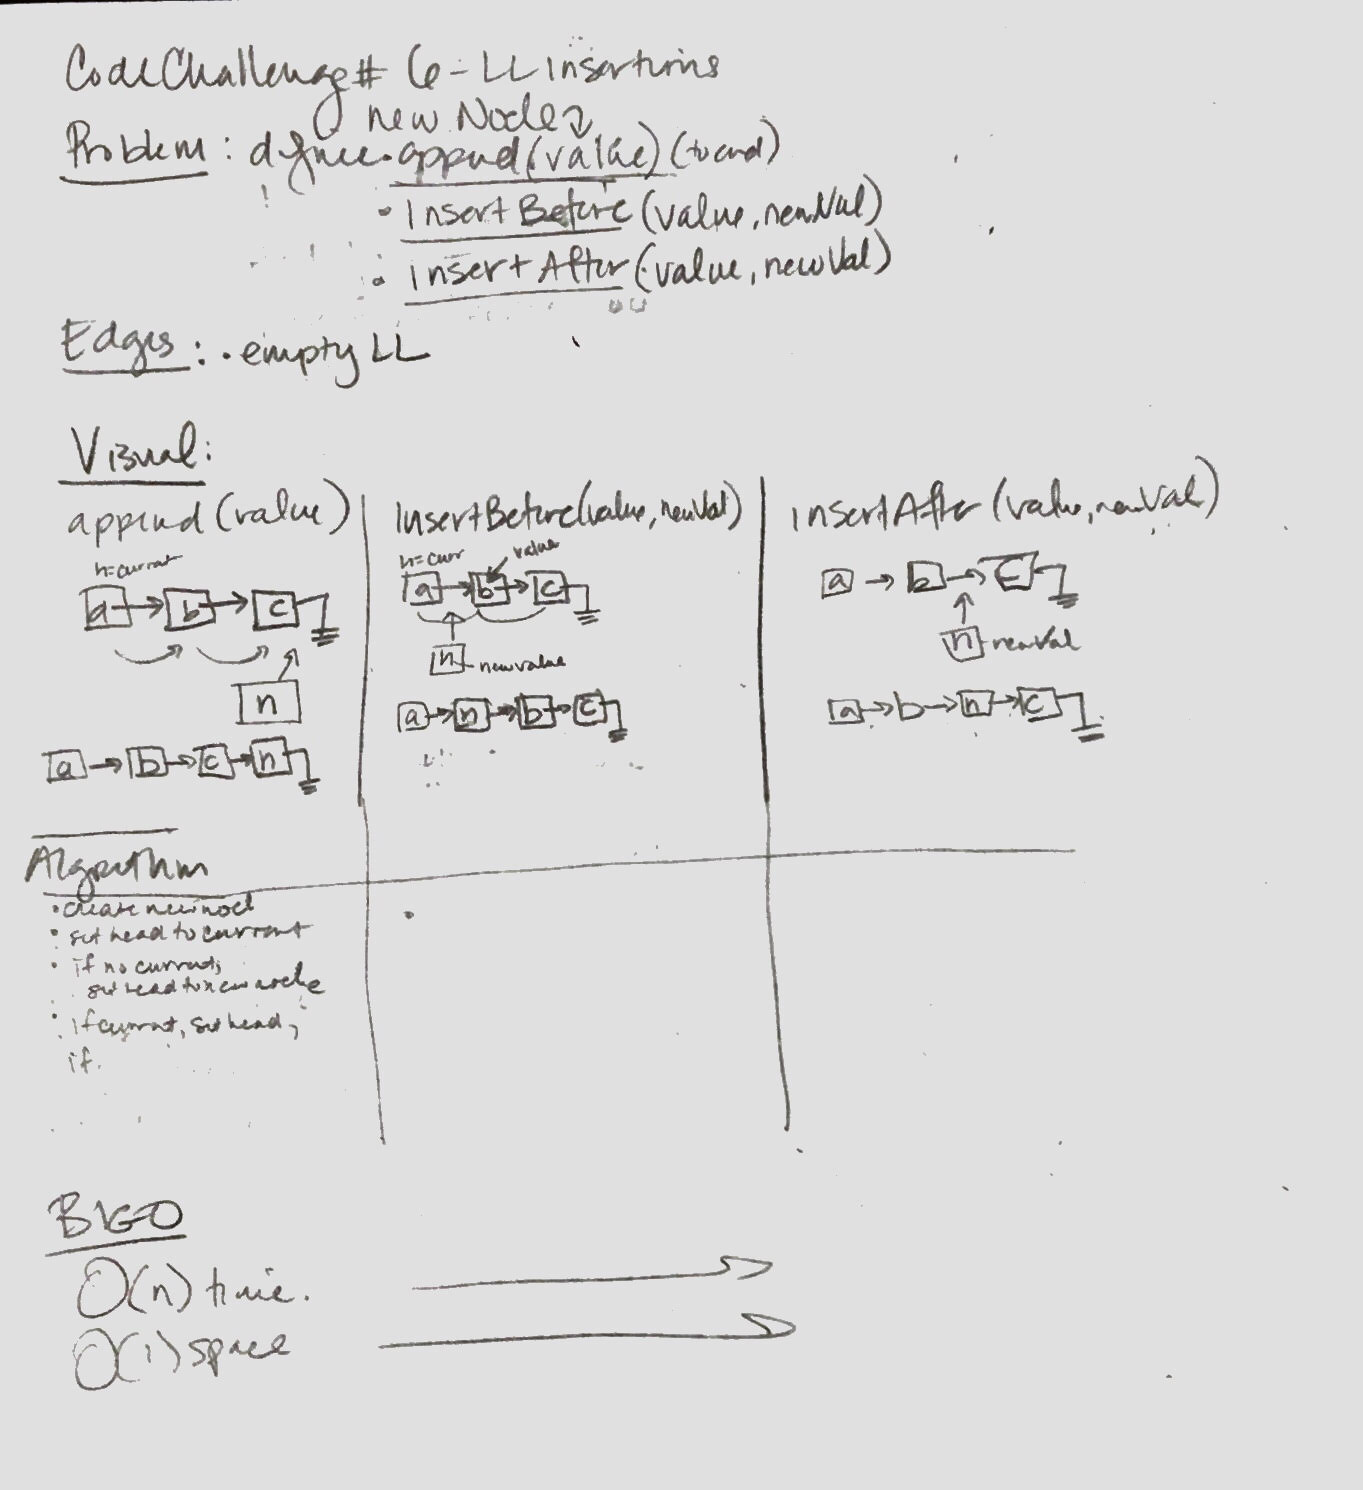 Code Challenge # 6 - LL insertions
new Node
Problem: define • append(value) (to end)
• Insert Before (value, newVal)
• Insert After (value, newVal)
Edges: • empty LL
Visual:
append (value)
h=current
a → b → c
n
a → b → c → n
Insert Before(value, newVal)
h=curr value
a → b → c
n - new value
a → n → b → c
insert After (value, newVal)
a → b → c
n - newVal
a → b → n → c
Algorithm
• create new nod
• set head to current
• if no current,
set head to new node
• if current, set head,
if.
•
BIG O
O(n) time.
O(1) space